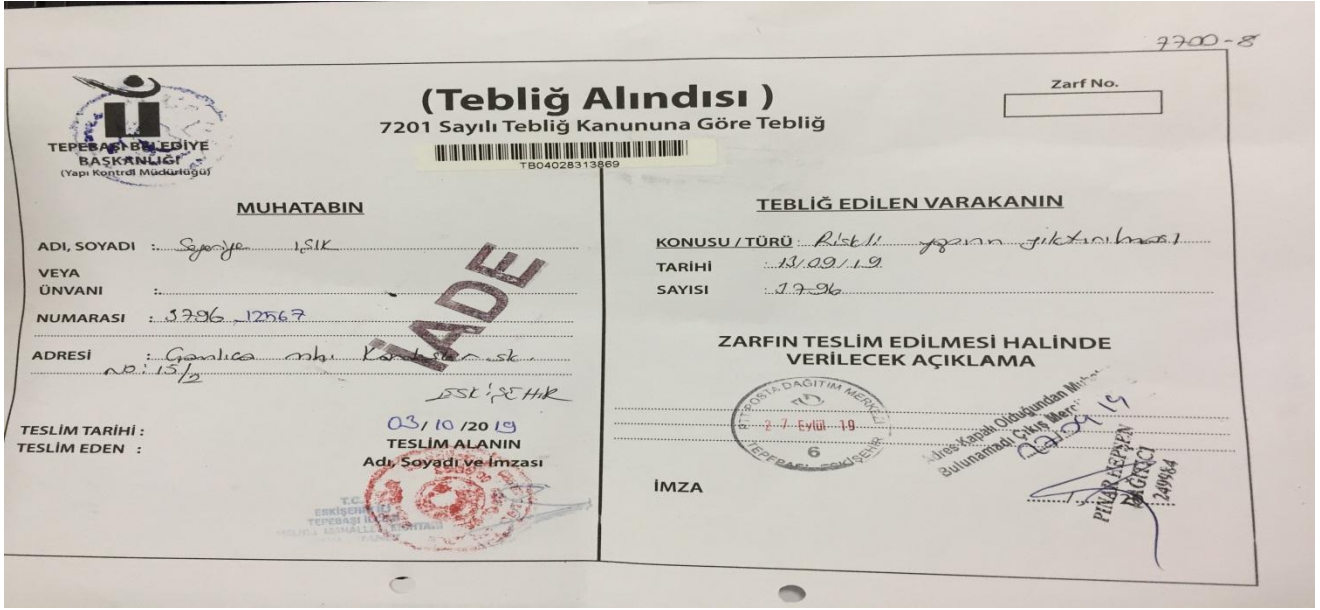 7700-8
TEPEBAŞI BELEDİYE
BAŞKANLIĞI
(Yapı Kontrol Müdürlüğü)
(Tebliğ Alındısı )
7201 Sayılı Tebliğ Kanununa Göre Tebliğ
TB04028313869
Zarf No.
MUHATABIN
ADI, SOYADI : IŞIK
VEYA
ÜNVANI :
NUMARASI : 3796 12567
ADRESİ : sk.
NO: 15/2
ESKİŞEHİR
İADE
TESLİM TARİHİ : 03/10/2019
TESLİM EDEN :
TESLİM ALANIN
Adı, Soyadı ve İmzası
T.C.
ESKİŞEHİR İLİ
TEPEBAŞI İLÇESİ
TEBLİĞ EDİLEN VARAKANIN
KONUSU / TÜRÜ : Riskli yapının yıktırılması
TARİHİ : 13/09/19
SAYISI : 3796
ZARFIN TESLİM EDİLMESİ HALİNDE
VERİLECEK AÇIKLAMA
PTT POSTA DAĞITIM MERKEZİ
27 Eylül 19
6
TEPEBAŞI ESKİŞEHİR
Adres Kapalı Olduğundan
Bulunamadı Çıkış
27/09/19
İMZA
PINAR HEPŞEN
DAĞITICI
249984